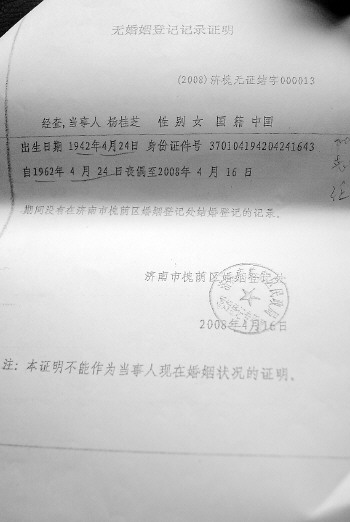 无婚姻登记记录证明
(2008)济槐无证结字000013
经查,当事人 杨桂芝 性别 女 国籍 中国
出生日期 1942年4月24日 身份证件号 370104194204241643
自1962年 4 月 24 日丧偶至2008年 4 月 16 日
期间没有在济南市槐荫区婚姻登记处结婚登记的记录。
济南市槐荫区婚姻登记处
2008年4月16日
注:本证明不能作为当事人现在婚姻状况的证明、